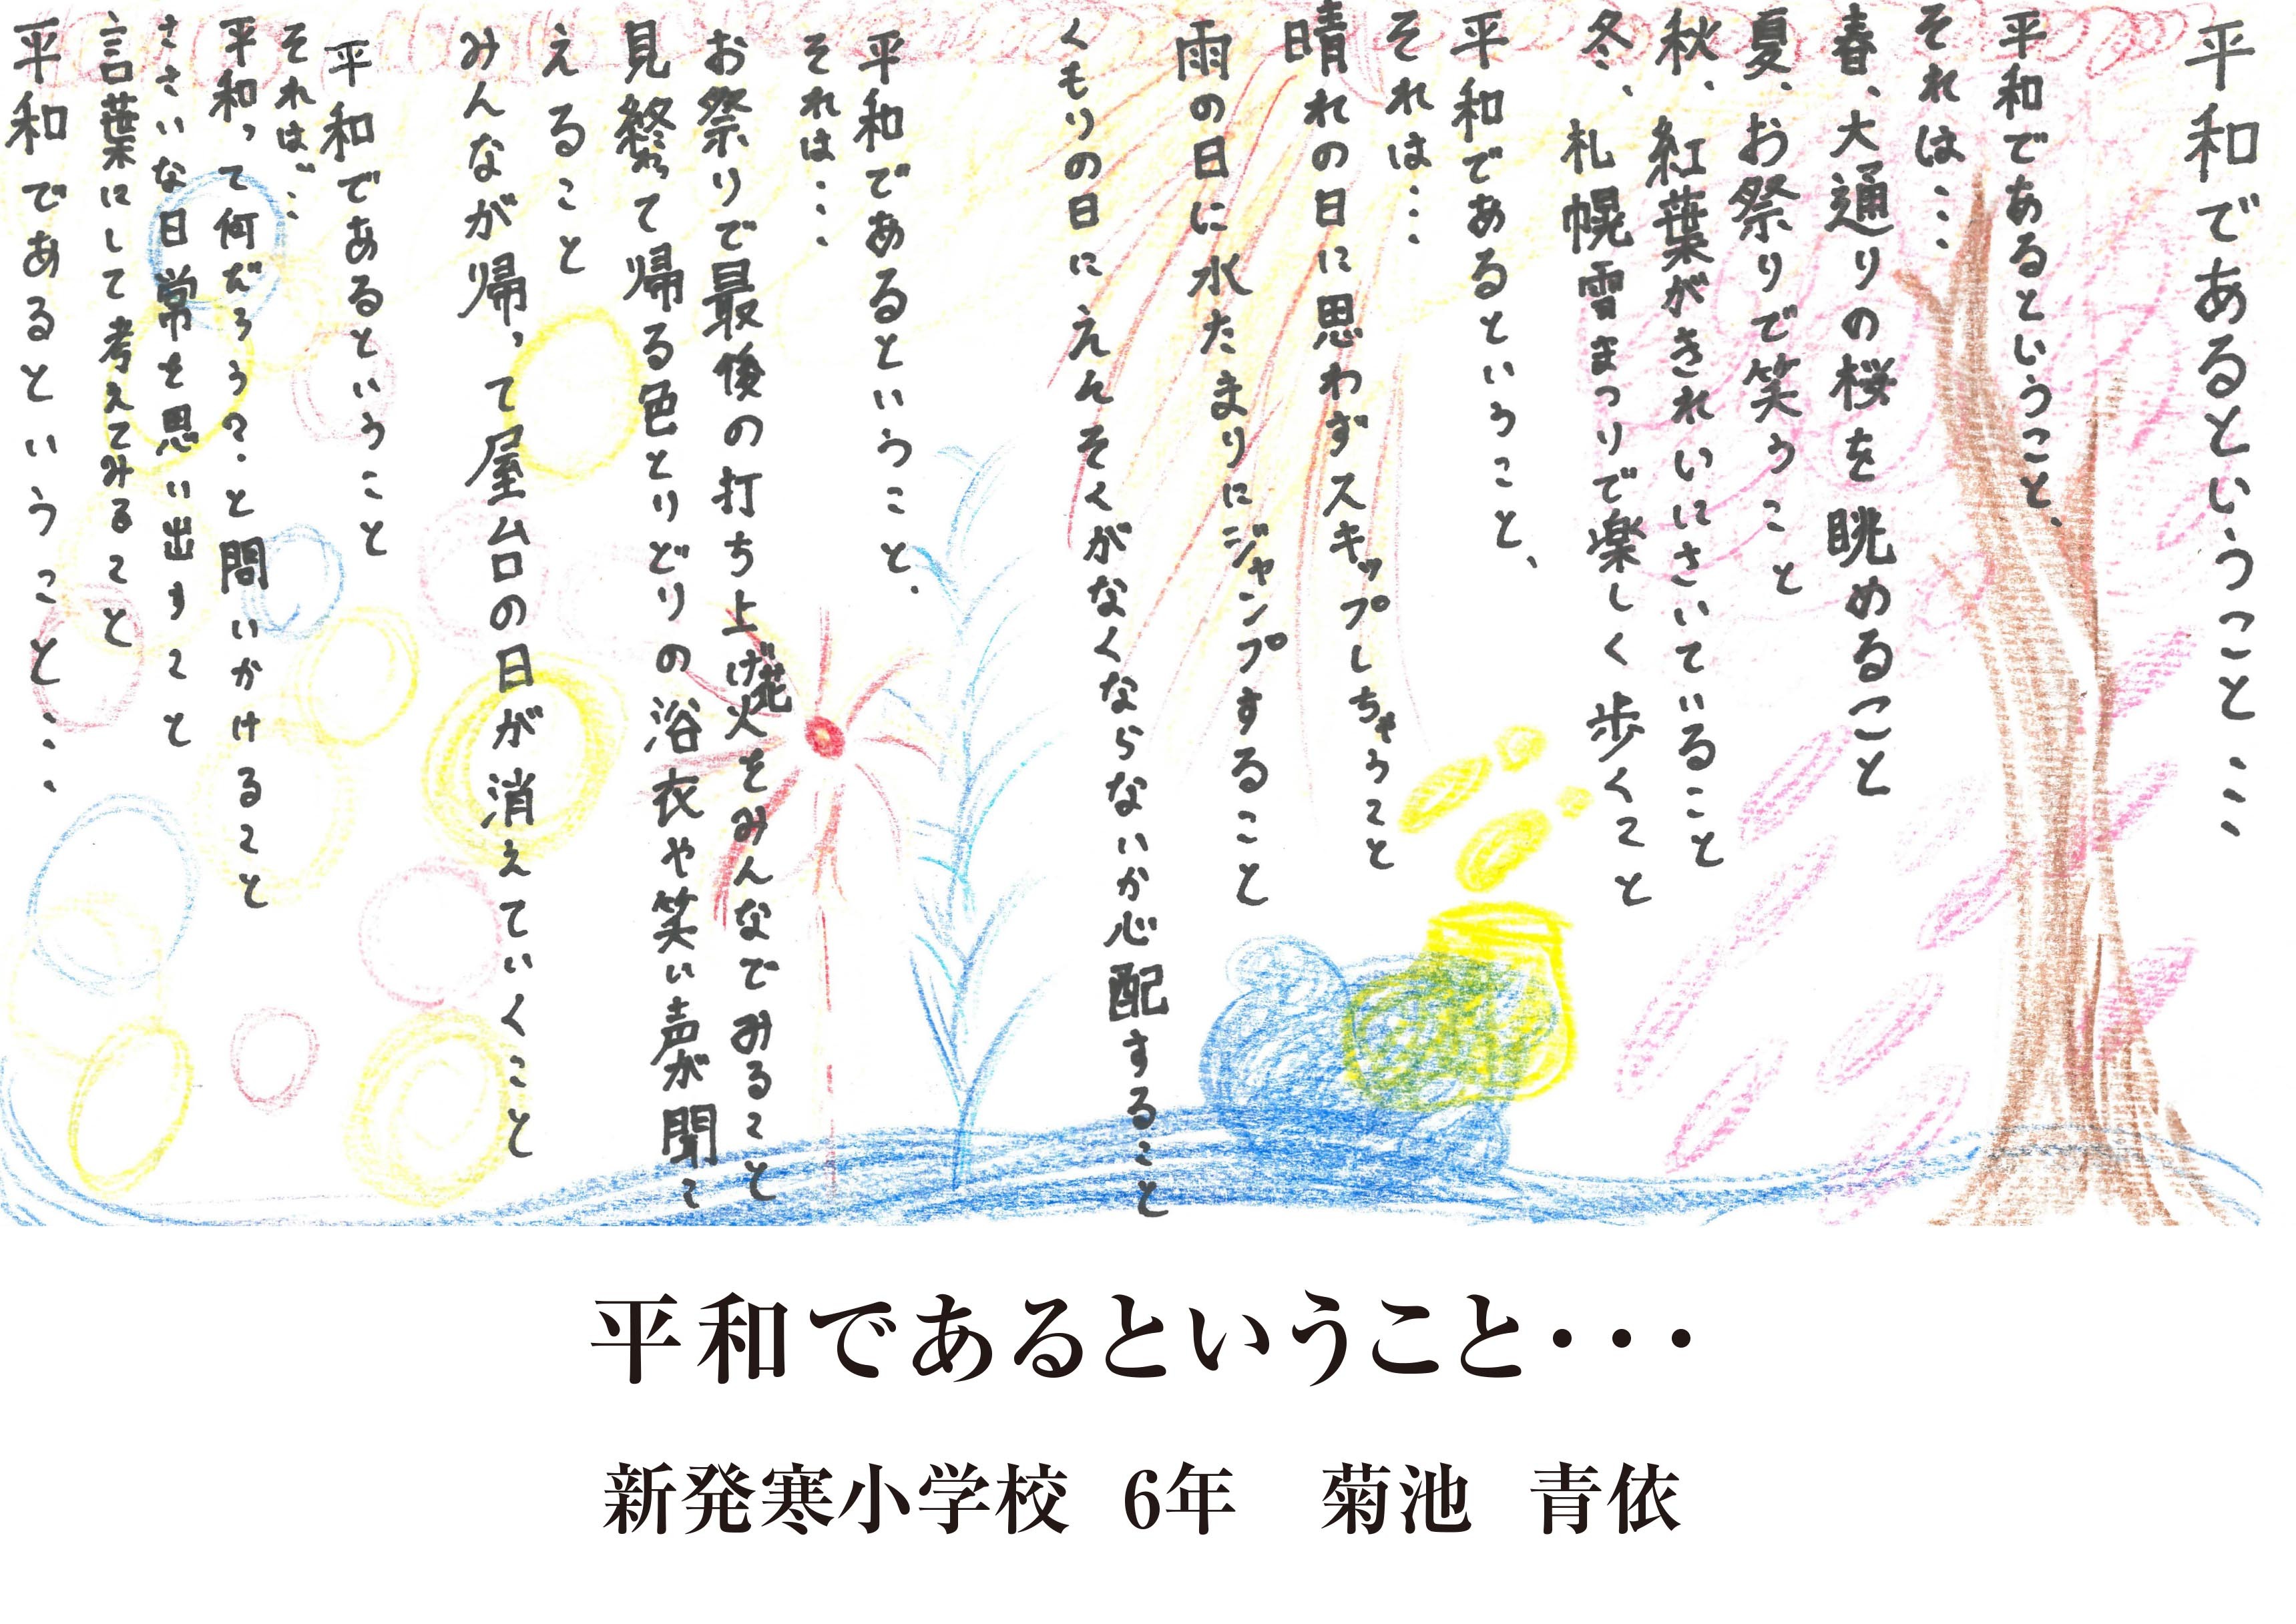 平和であるということ・・・
平和であるということ、
それは・・・
春、大通りの桜を眺めること
夏、お祭りで笑うこと
秋、紅葉がきれいにさいていること
冬、札幌雪まつりで楽しく歩くこと
平和であるということ、
それは・・・
晴れの日に思わずスキップしちゃうこと
雨の日に水たまりにジャンプすること
くもりの日にえんそくがなくならないか心配すること
平和であるということ、
それは・・・
お祭りで最後の打ち上げ花火をみんなでみること
見終わって帰る色とりどりの浴衣や笑い声が聞こ
えること
みんなが帰って屋台の日が消えていくこと
平和であるということ
それは・・・
平和って何だろう?と問いかけること
ささいな日常を思い出すこと
言葉にして考えてみること
平和であるということ・・・
平和であるということ・・・
新発寒小学校 6年 菊池 青依